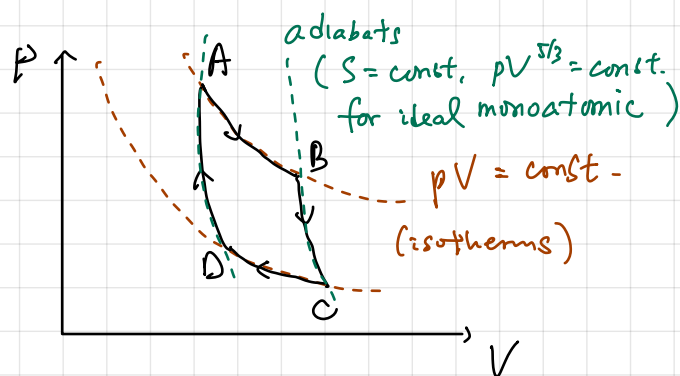 adiabats
P
A
(S = const, pV^5/3 = const.
for ideal monoatomic)
B
pV = const -
(isotherms)
D
C
V